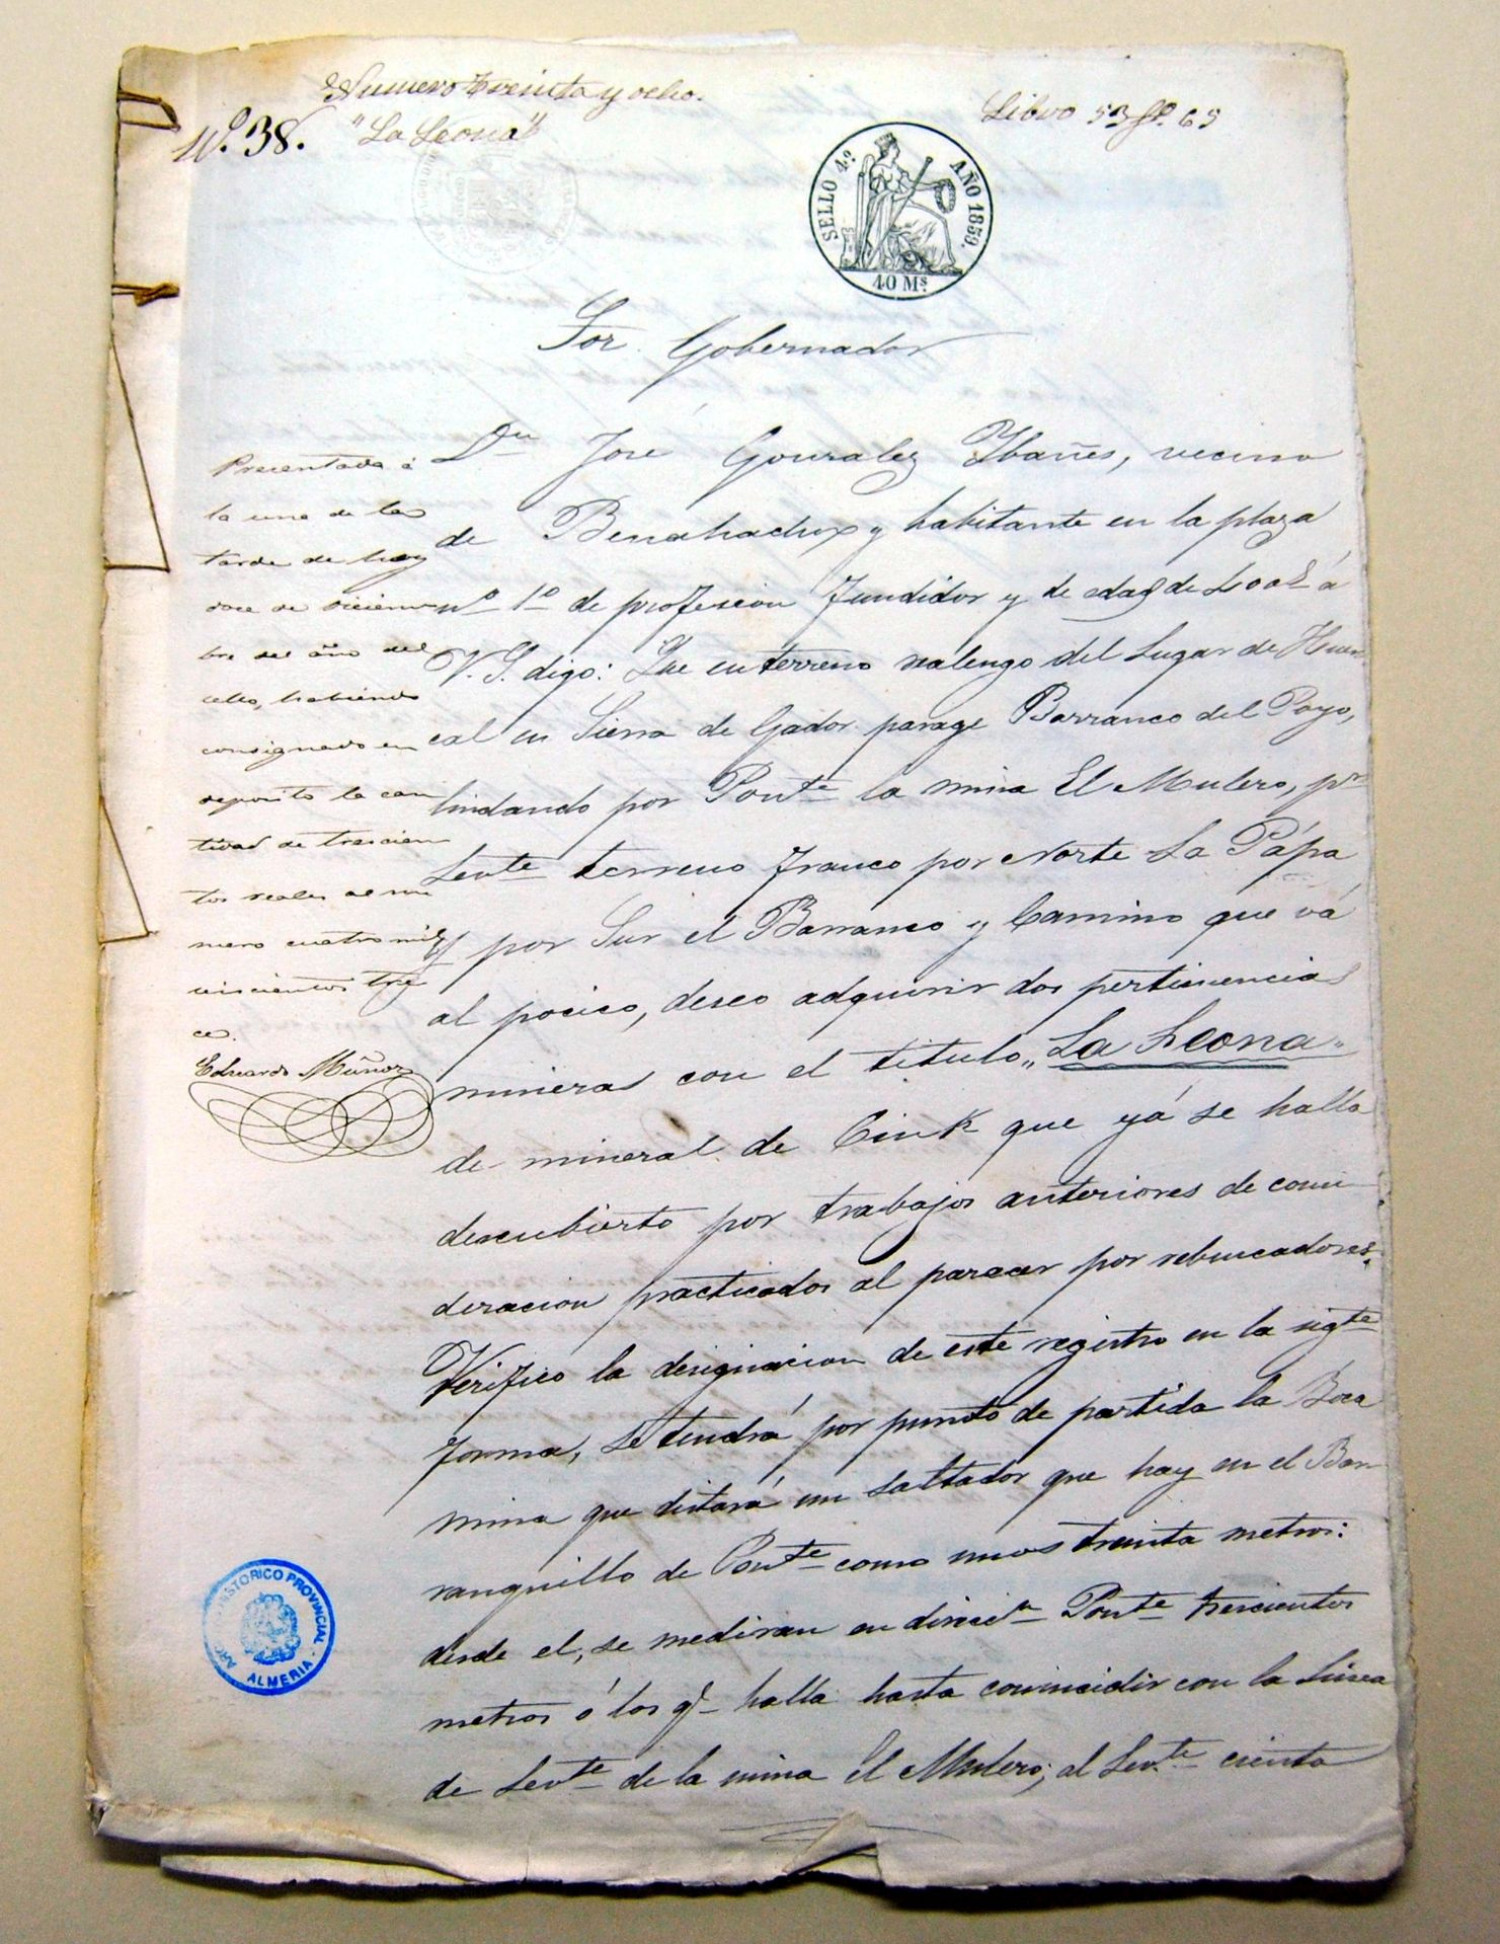 Numero treinta y ocho.
Nº. 38. "La Leona"
Libro 53 fº. 65
SELLO 4.º AÑO 1859.
40 Ms
Sor. Gobernador
Presentada á
la una de la
tarde de hoy
doce de diciem
bre del año del
sello, habiendo
consignado en
deposito la can
tidad de trescien
tos reales
mero cuatro mil
seiscientos tre
ce.
Eduardo Muñoz
Dn José Gonzalez Ybañes, vecino
de Benahadux y habitante en la plaza
nº 1º de profesion fundidor y de edad de á
V. S. digo: Que en terreno realengo del Lugar de Huer
cal en Sierra de Gador parage Barranco del Payo,
lindando por Ponte la mina El Mulero, pr
Levte terreno franco por Norte La Pápa
y por Sur el Barranco y Camino que vá
al pocico, deseo adquirir dos pertinencias
mineras con el titulo „La Leona„
de mineral de Cink que yá se halla
descubierto por trabajos anteriores de consi
deracion practicados al parecer por rebuscadores.
Verifico la designacion de este registro en la sigte
forma, se tendrá por punto de partida la Boca
mina que distará un saltador que hay en el Bar
ranquillo de Ponte como unos treinta metros:
desde el, se mediran en direcin Ponte trescientos
metros ó los q halla hasta convincidir con la Linea
de Levte de la mina El Mulero; al Levte ciento
ARC HISTORICO PROVINCIAL
ALMERIA